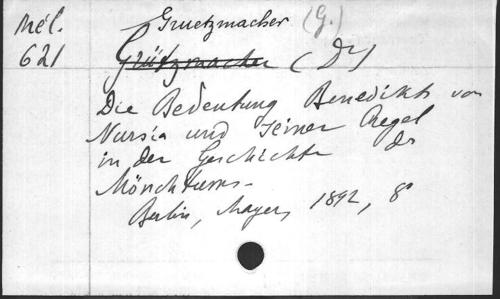 Mél.
621
Gruetzmacher (G.)
Grützmacher (Dr)
Die Bedeutung Benedikts von
Nursia und seiner Regel
in der Geschichte des
Mönchtums-
Berlin, Mayer, 1892, 8°